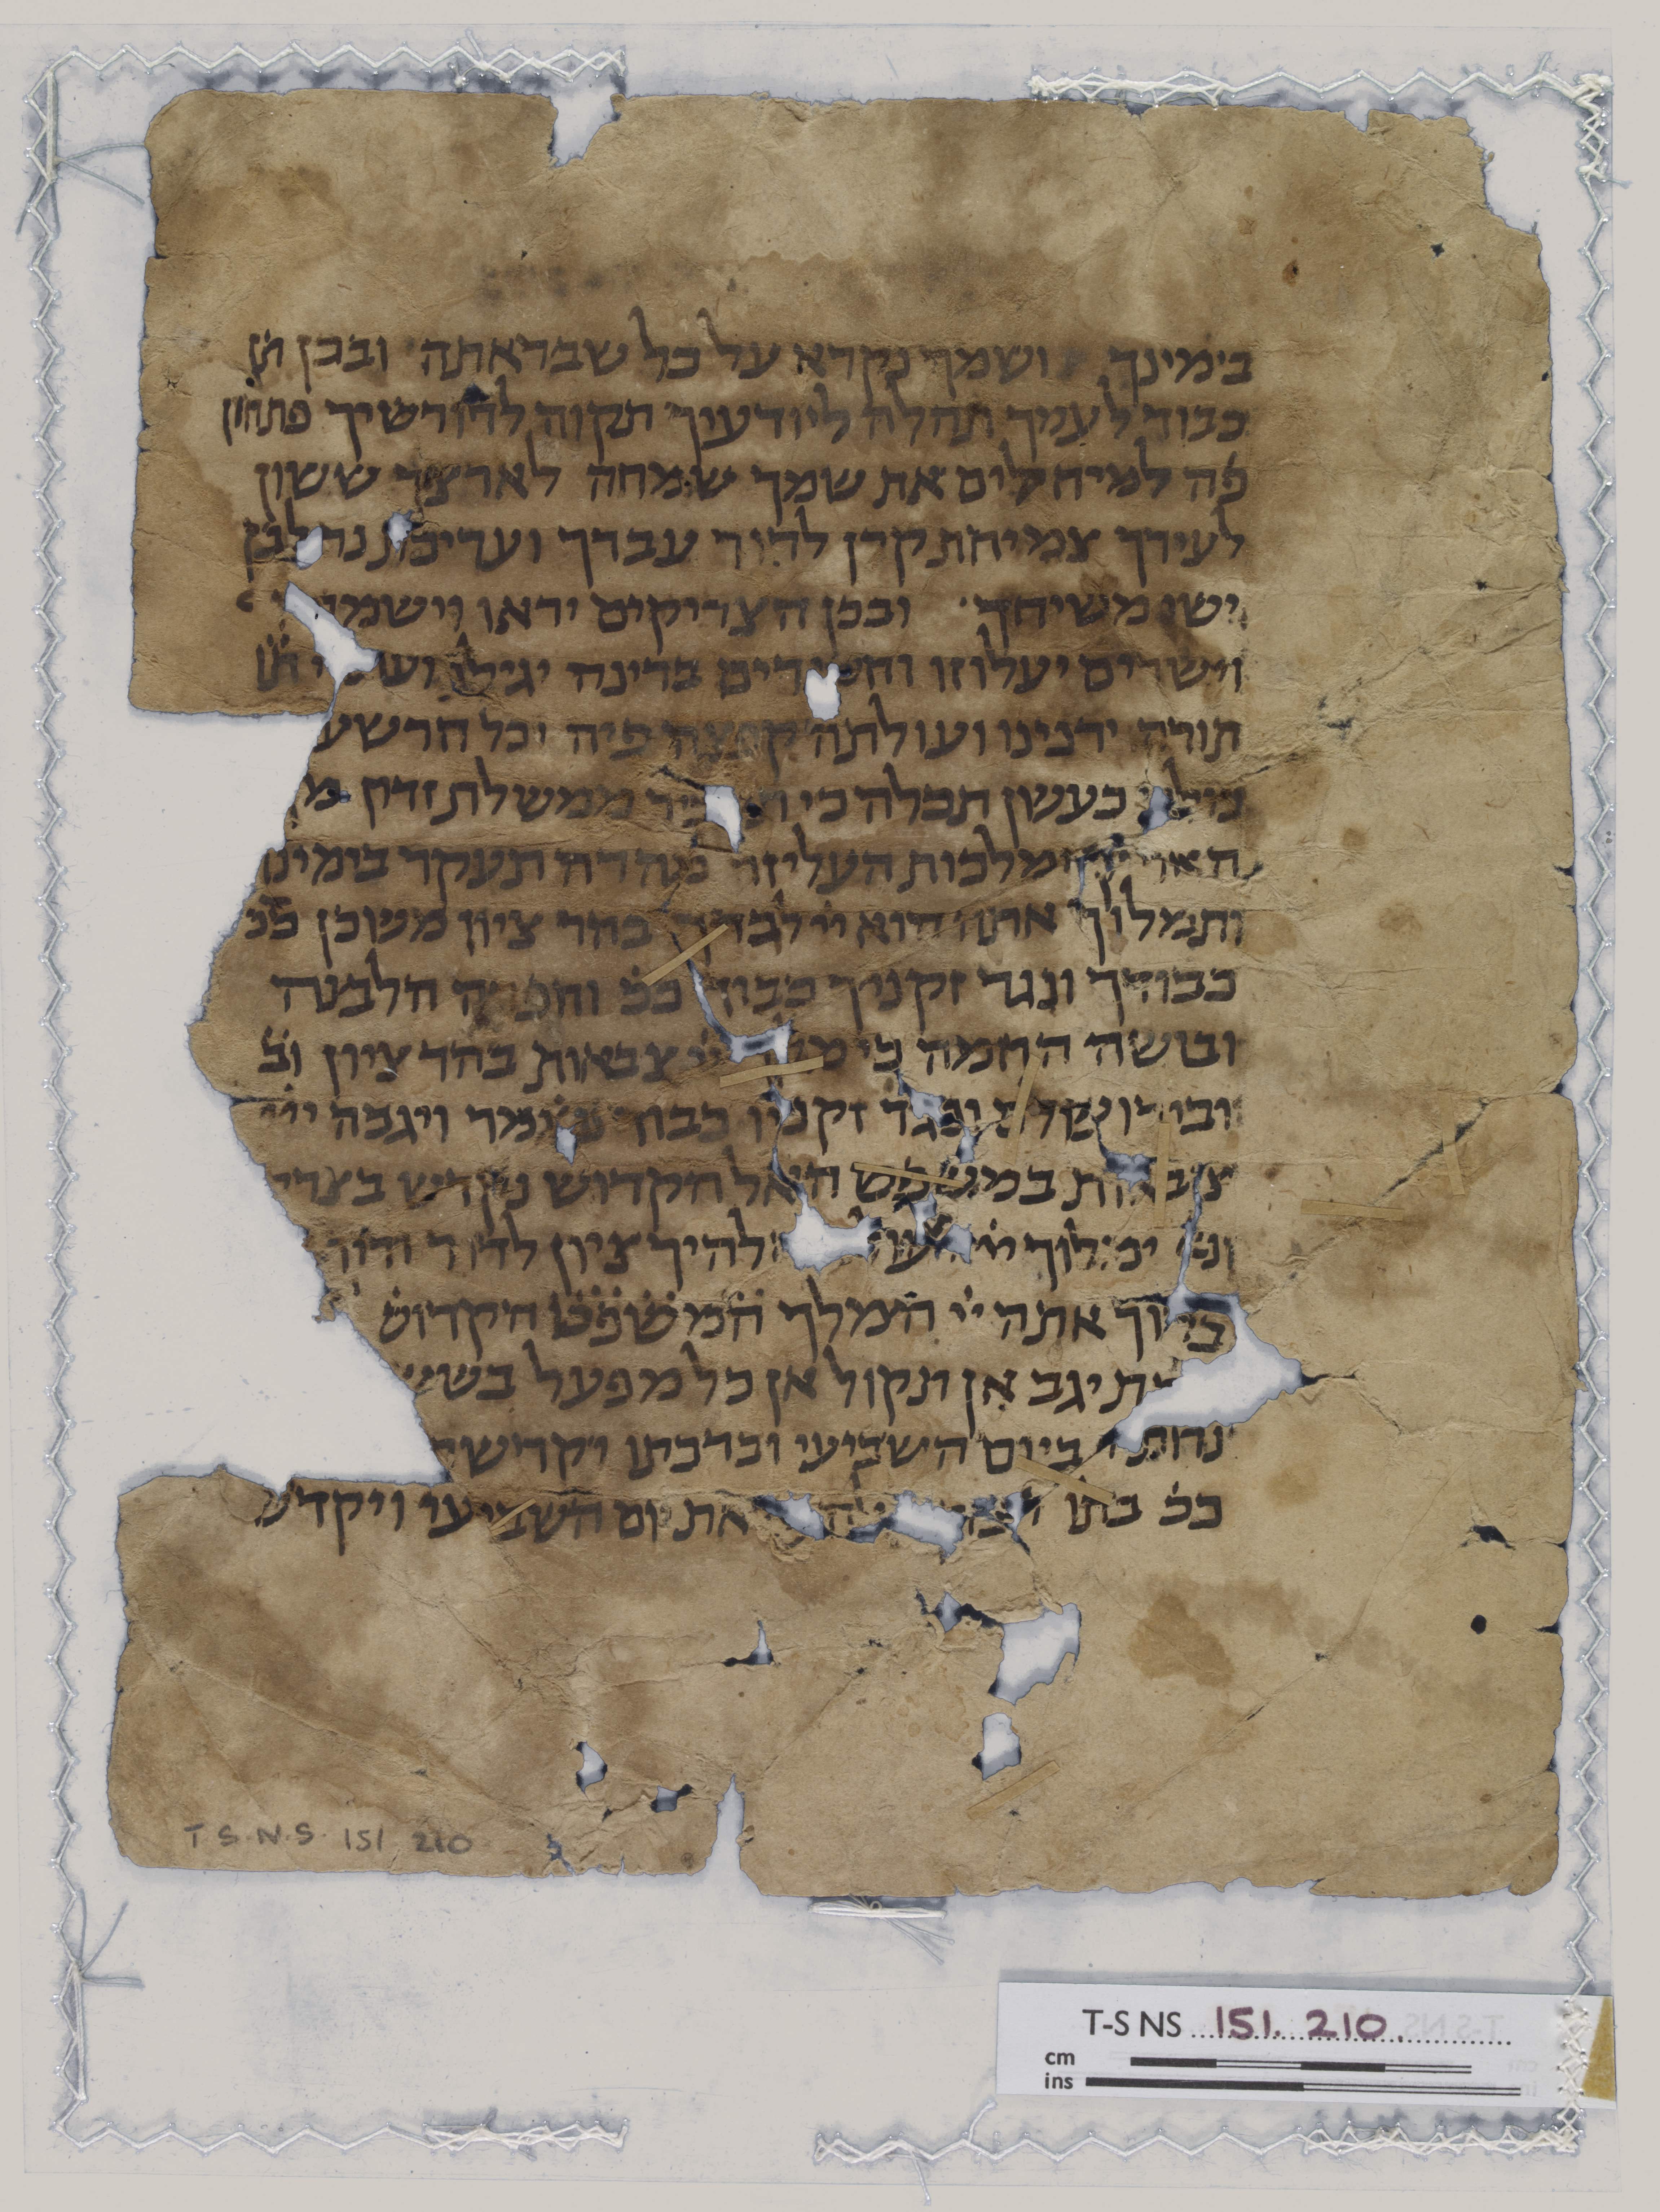 בימינך ושמך נקרא על כל שבראתה ובכן תן
כבוד לעמך תהלה ליודעיך תקוה לדורשיך פתחון
פה למיחלים את שמך שמחה לארצך ששון
לעירך צמיחת קרן לדויד עבדך ועריכת נר לבן
ישי משיחך ובכן הצדיקים יראו וישמחו
וישרים יעלוזו וחסידים ברינה יגילו
תורה ירנינו ועולתה קפצה פיה וכל הרשע
כולו כעשן תכלה כי תעביר ממשלת זדון מן
הארץ ומלכות העליזה מהרה תעקר בימינו
ותמלוך אתה הוא ייי לבדך בהר ציון משוכן ככ
כבודך ונגד זקניך כבוד ככ וחפרה הלבנה
ובושה החמה כי מלך ייי צבאות בהר ציון וב
ובירושלם ונגד זקניו כבוד ונאמר ויגבה ייי
צבאות במשפט האל הקדוש נקדש בצדקה
ונא ימלוך ייי לעולם אלהיך ציון לדור ודור
ברוך אתה ייי המלך המשפט הקדוש
יגב אן תקול אן כל מפעל בששת
ביום השביעי וברכתו וקדשתו
ככ בתו את יום השביעי ויקדש
T-S.N.S. 151 210
T-S NS 151. 210
cm
ins